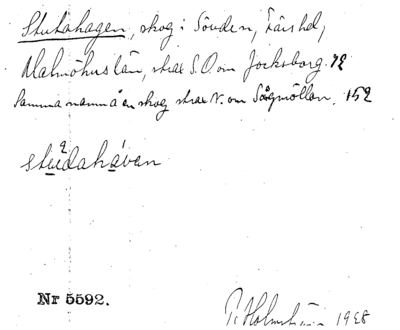 Stutahagen, skog i Sövden, Färs hd,
Malmöhus län, strax S.O. om Jocksborg. 72
Samma namn å en skog strax V. om Sågmöllan, 152
stu²dahá̱van
Nr 5592.
P. Holm 1928